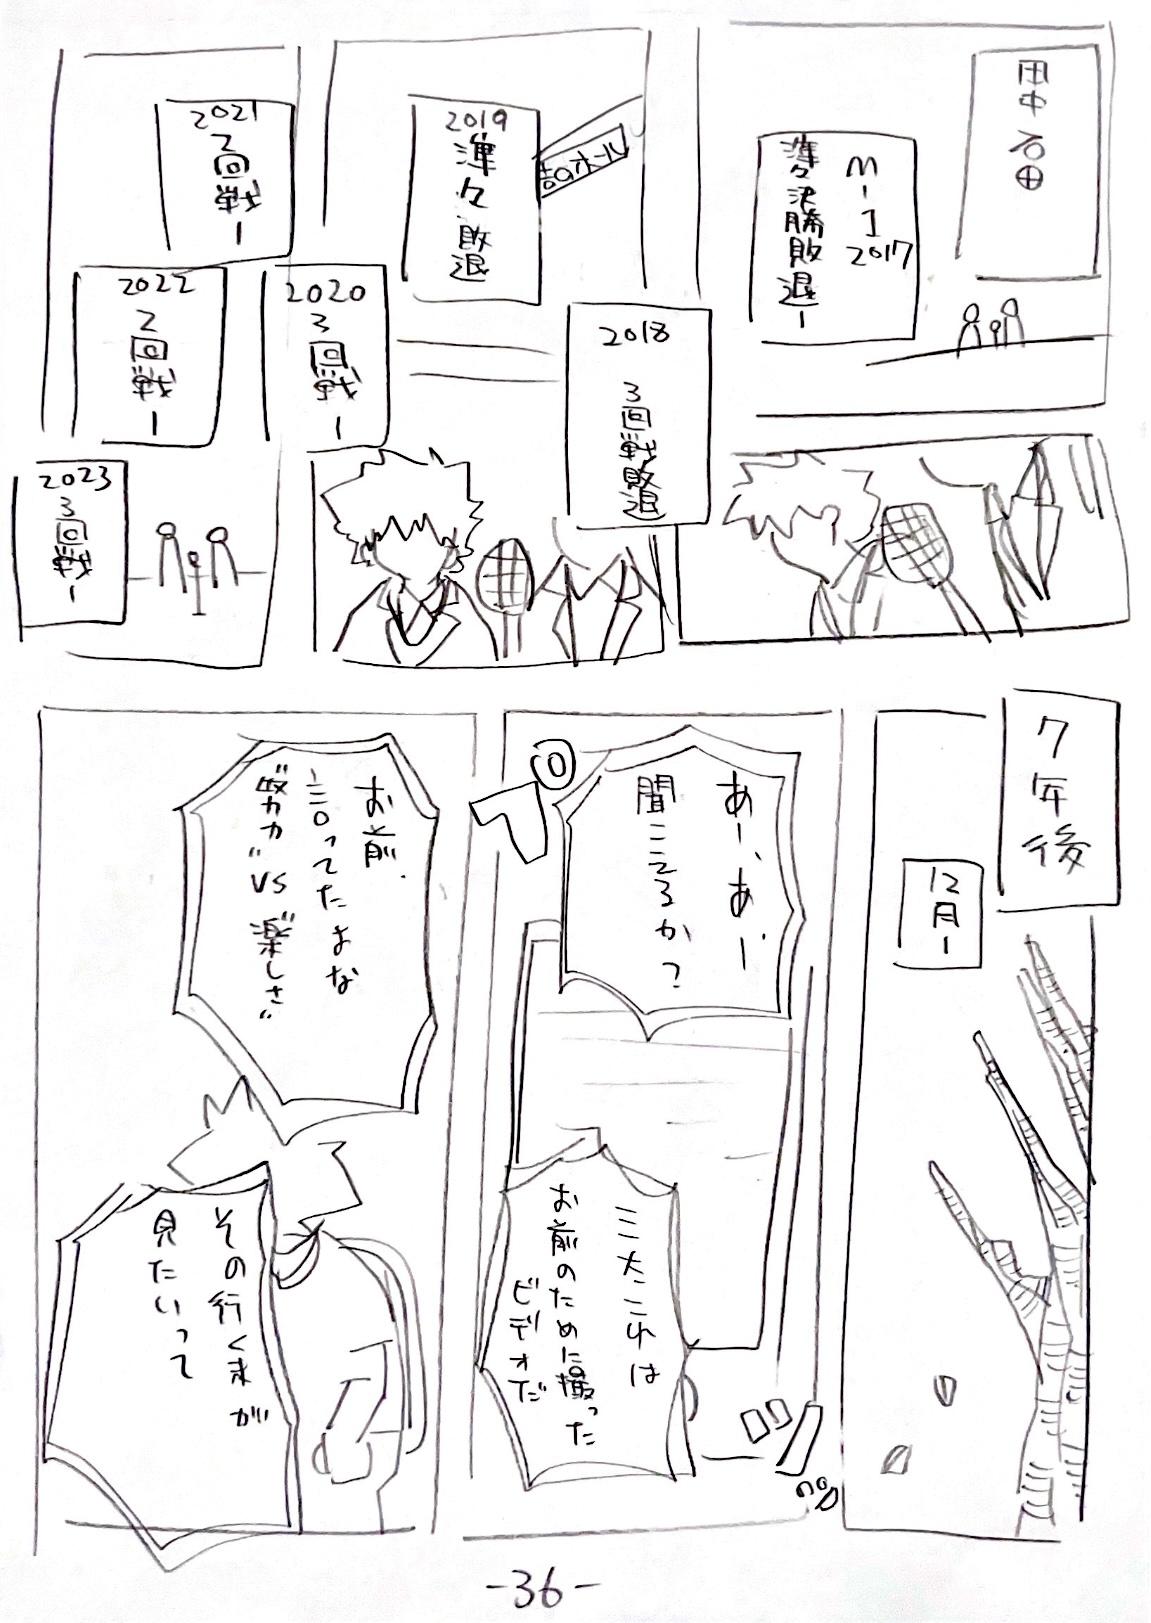 田中石田
M-1
2017
準々決勝敗退ー
2018
3回戦敗退
2019
準々敗退
2020
3回戦ー
2021
2回戦ー
2022
2回戦ー
2023
3回戦ー
7年後
12月ー
あー、あー
聞こえるか?
プ
これは
お前のために撮った
ビデオだ
お前、
言ってたよな
"努力"VS"楽しさ"
その行く末が
見たいって
-36-